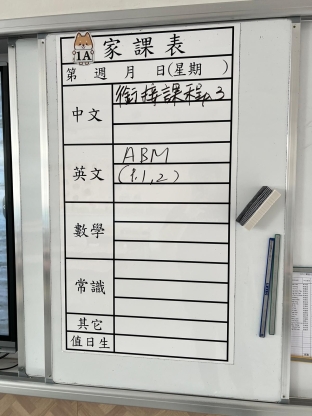 1A
家課表
第 週 月 日(星期 )
中文
銜接課程p.3
英文
ABM
(P.1,2)
數學
常識
其它
值日生